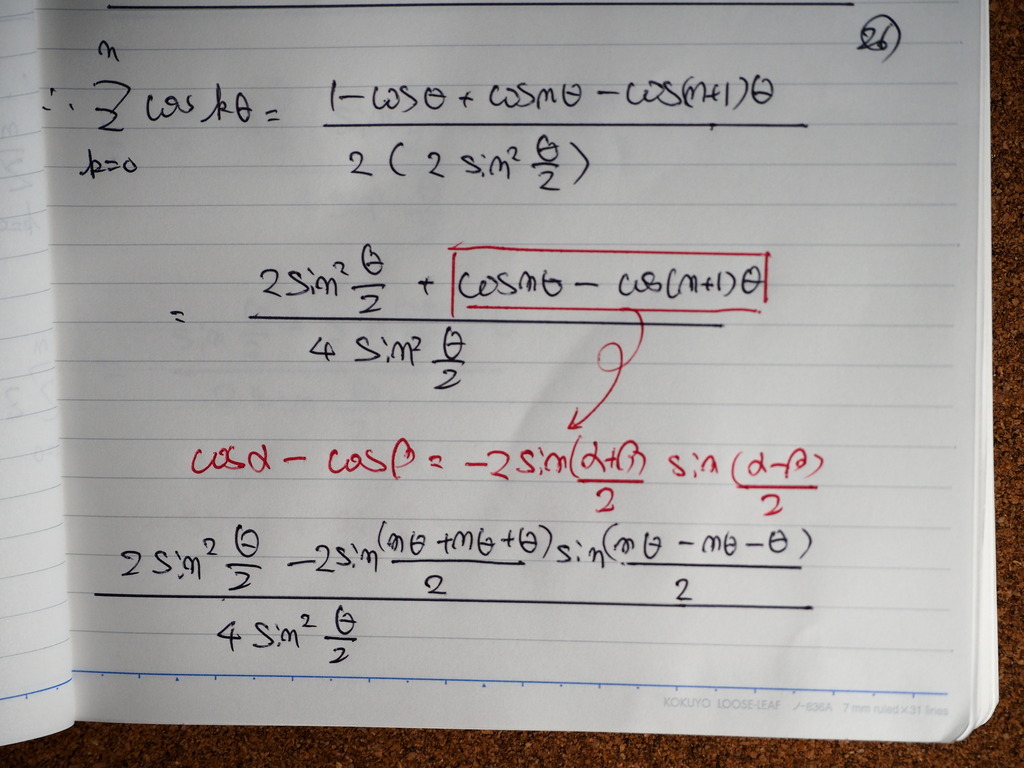 26
∴ n∑k=0 cos kθ = (1 - cosθ + cosnθ - cos(n+1)θ) / (2 ( 2 sin² θ/2 ))
= (2 sin² θ/2 + cosnθ - cos(n+1)θ) / (4 sin² θ/2)
cosα - cosβ = -2 sin (α+β)/2 sin (α-β)/2
(2 sin² θ/2 - 2 sin (nθ + nθ + θ)/2 sin (nθ - nθ - θ)/2) / (4 sin² θ/2)
KOKUYO LOOSE-LEAF ノ-836A 7 mm ruled × 31 lines